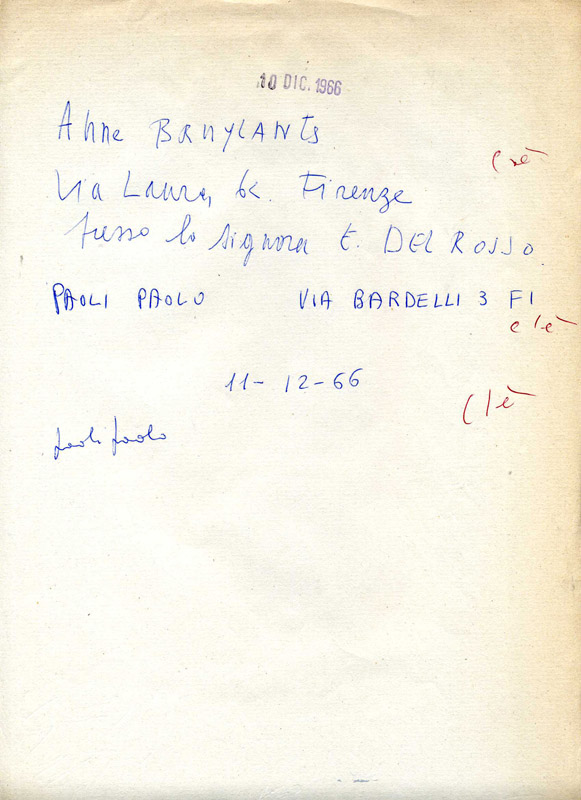 10 DIC. 1966
Anne BRUYLANTS
Via Laura, 6k. Firenze
presso la signora E. DEL ROSSO
PAOLI PAOLO VIA BARDELLI 3 FI
c'è
11-12-66
c'è
paoli paolo